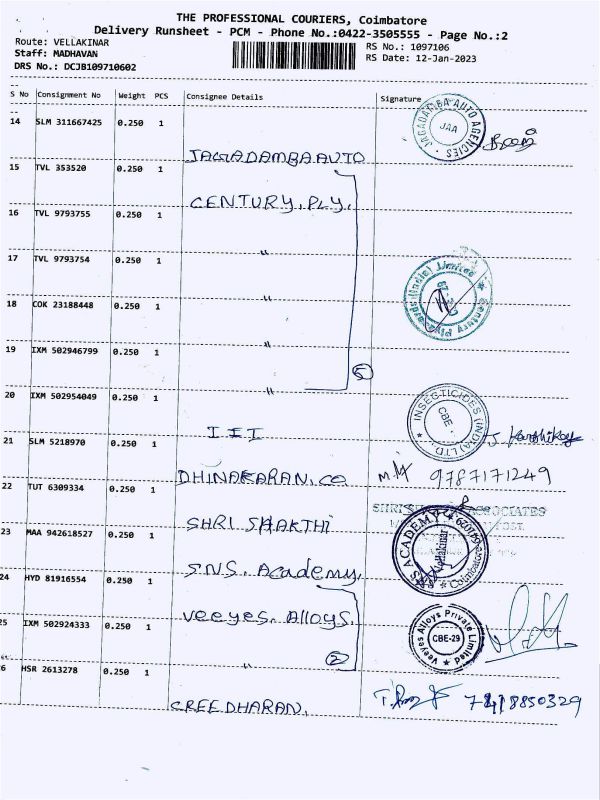 THE PROFESSIONAL COURIERS, Coimbatore
Delivery Runsheet - PCM - Phone No.:0422-3505555 - Page No.:2
Route: VELLAKINAR
RS No.: 1097106
Staff: MADHAVAN
RS Date: 12-Jan-2023
DRS No.: DCJB109710602
S No Consignment No Weight PCS Consignee Details Signature
14 SLM 311667425 0.250 1
JAGADAMBA AUTO AGENCIES
JAA
JAGADAMBA AUTO
15 TVL 353520 0.250 1
CENTURY. PLY.
16 TVL 9793755 0.250 1
"
17 TVL 9793754 0.250 1
Century Plyboards (India) Limited
"
18 COK 23188448 0.250 1
"
19 IXM 502946799 0.250 1
5
"
20 IXM 502954049 0.250 1
INSECTICIDES (INDIA) LTD
CBE
I I I
21 SLM 5218970 0.250 1
DHINAKARAN. CO
9787171249
22 TUT 6309334 0.250 1
SHRI ASSOCIATES
POST.
SHRI SHAKTHI
23 MAA 942618527 0.250 1
SNS ACADEMY
Vellakinar
Coimbatore
S.N.S. Academy.
24 HYD 81916554 0.250 1
Veeyes. Alloys.
25 IXM 502924333 0.250 1
Veeyes Alloys Private Limited
CBE-29
2
"
26 HSR 2613278 0.250 1
SREEDHARAN.